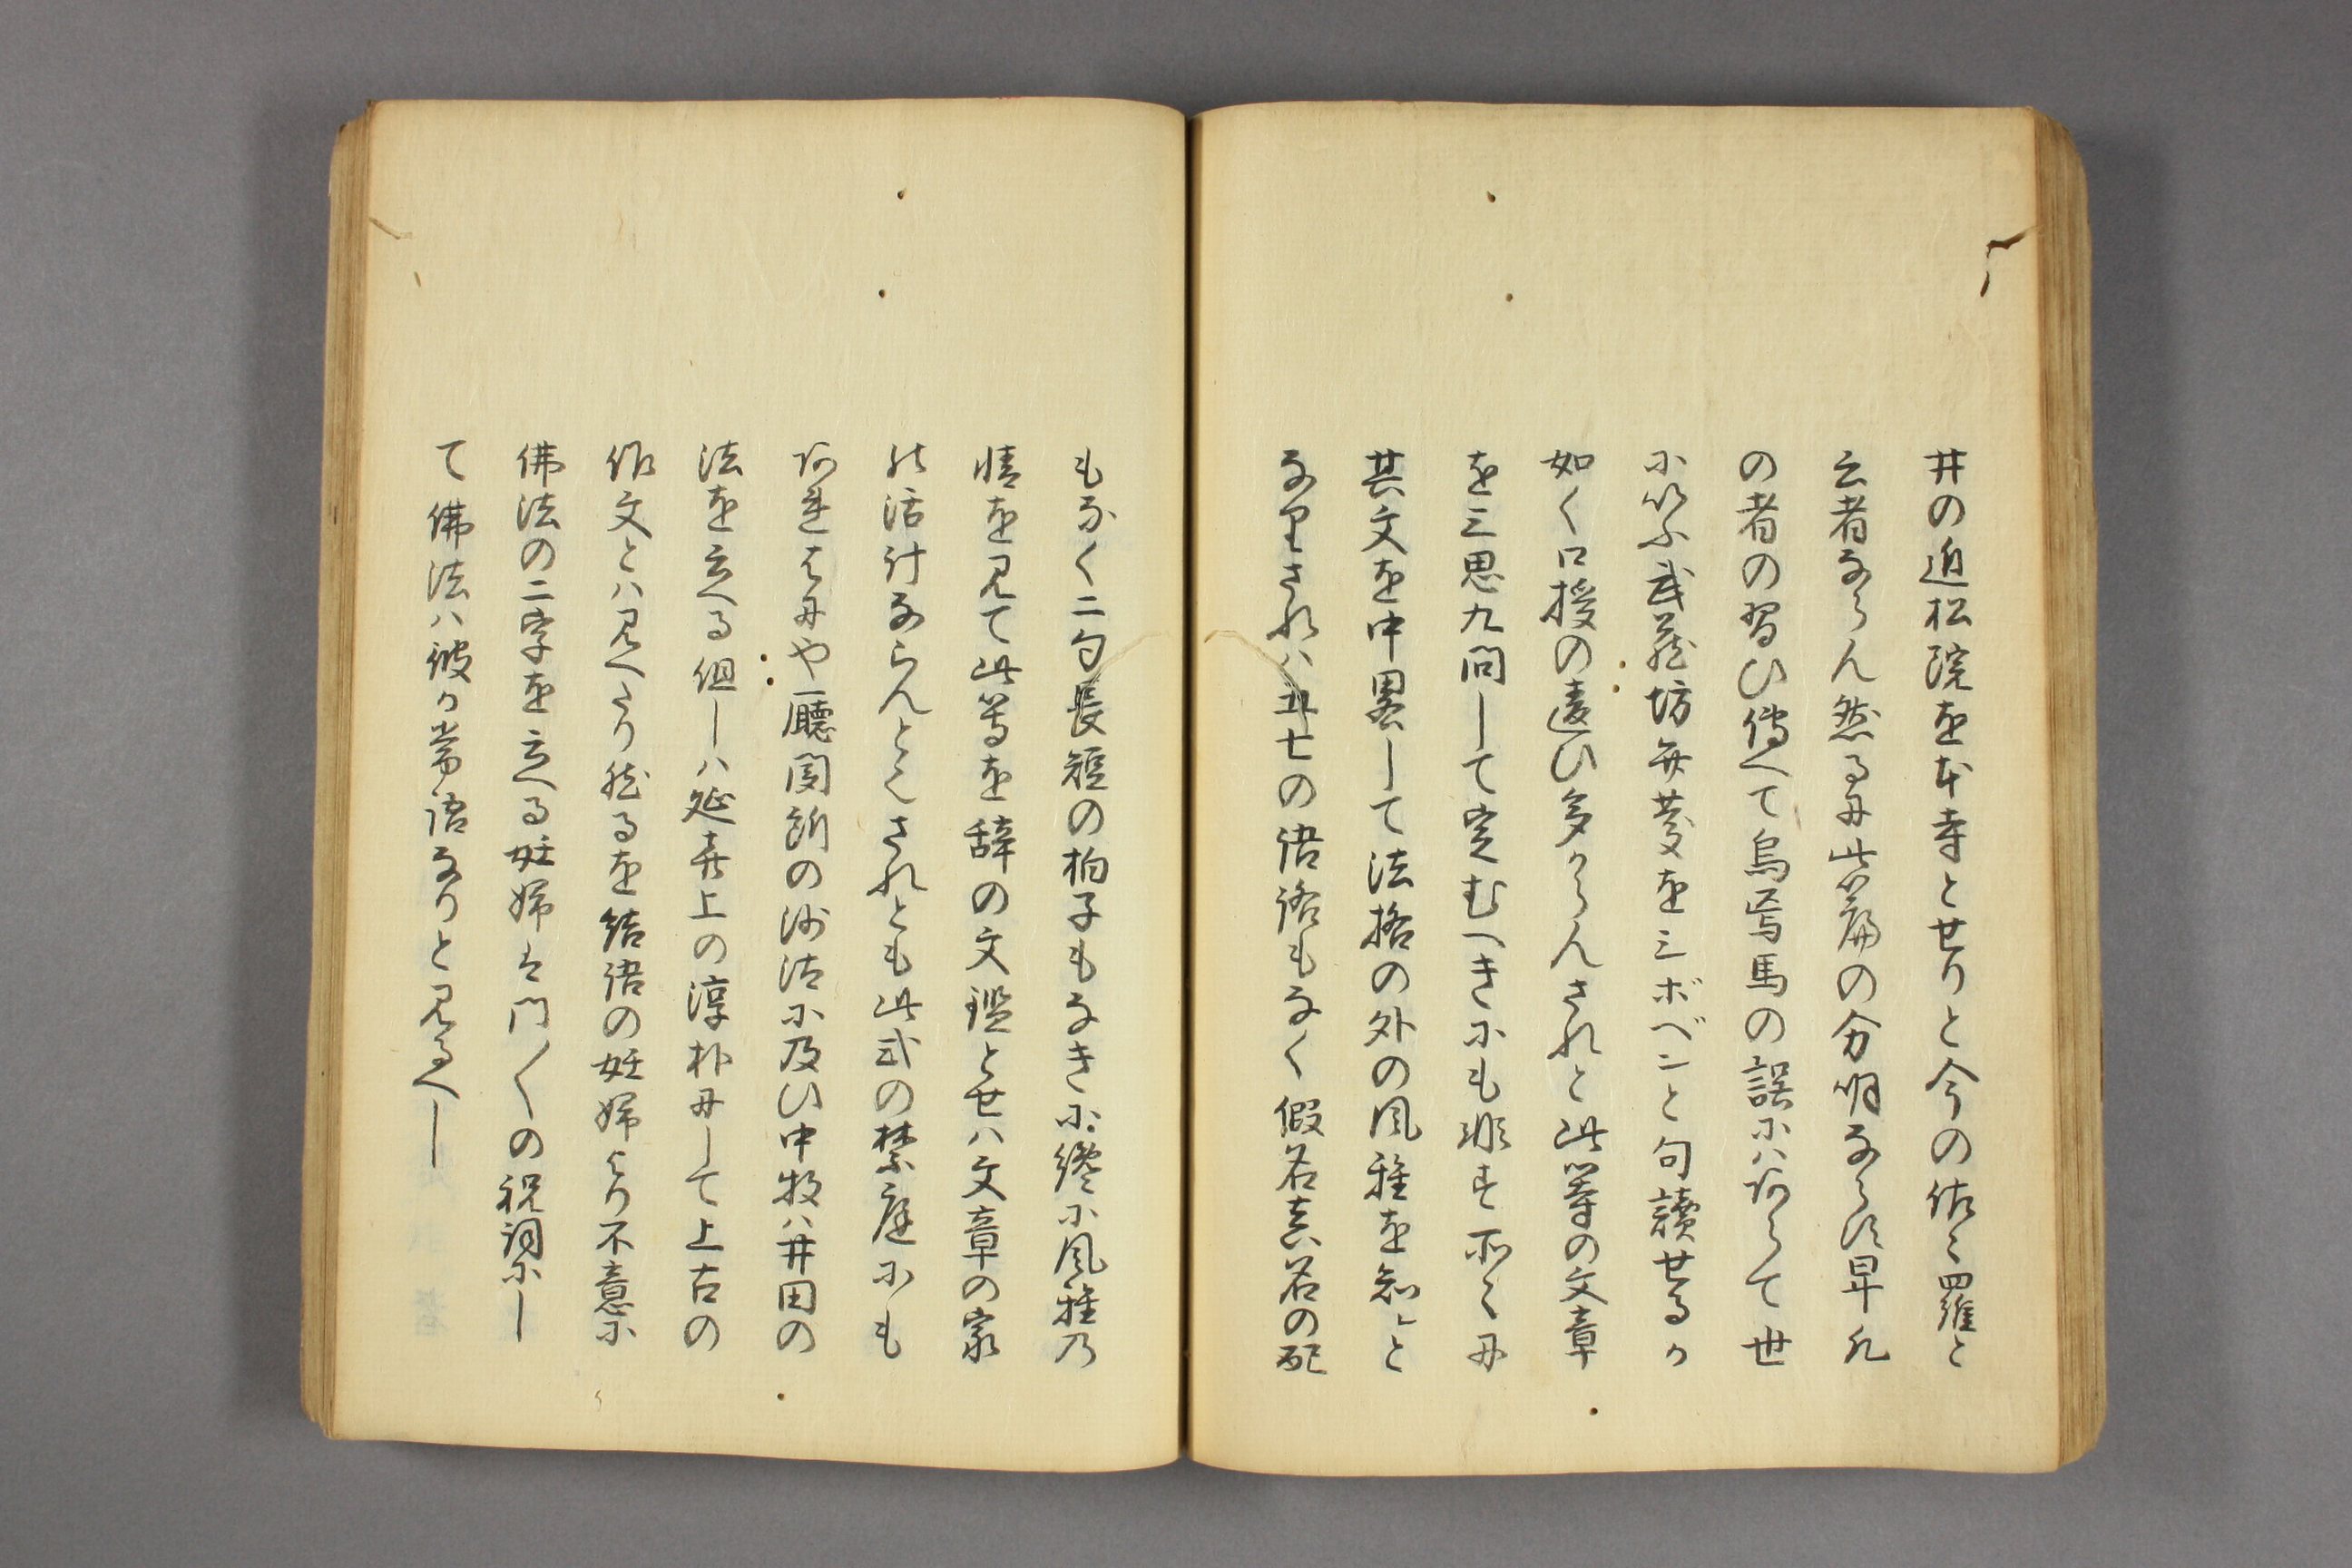 井の近松院を本寺とせりと今の佐々羅と
云者ならん然るに此篇の分明ならす早凡
の者の習ひ傳へて烏焉馬の誤にハあらて世
にいふ武蔵坊弁慶を三ボベンと句讀せるか
如く口授の違ひ多からんされと此等の文章
を三思九問して定むへきにも非す所々に
其文を中畧して法格の外の風雅を知レと
なりされハ五七の語路もなく假名真名の配
もなく二句長短の拍子もなきに纔に風雅乃
情を見て此等を辞の文鑑とせハ文章の家
の活計ならんとそされとも此式の禁庭にも
あれはにや聴聞所の沙法に及ひ中牧ハ井田の
法を云へる但しハ延喜上の淳朴にして上古の
作文とハ見へたり然るを結語の妊婦より不意に
佛法の二字を云へる妊婦は門〱の祝詞にし
て佛法ハ彼か常語なりと見るへし